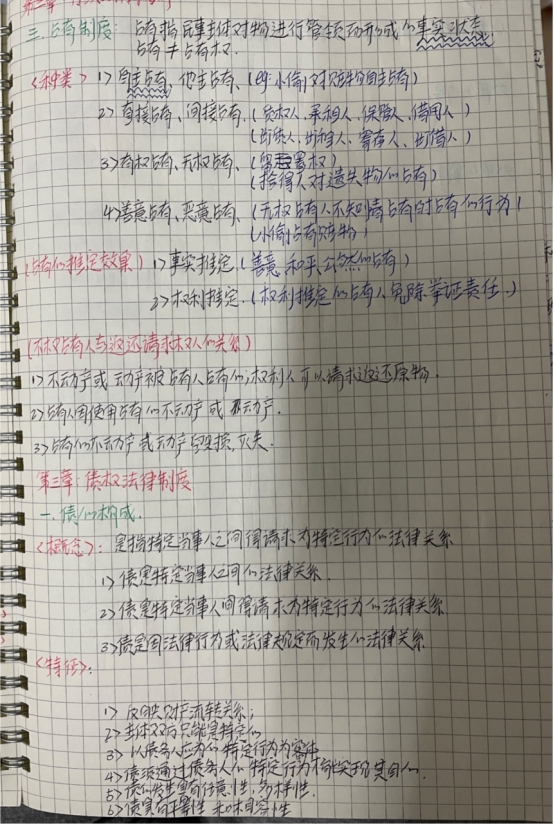 三、占有制度: 占有指民事主体对物进行管领而形成的事实状态
占有≠占有权.
<种类> 1> 自主占有、他主占有、(eg:小偷对赃物自主占有)
2> 直接占有、间接占有、(质权人、承租人、保管人、借用人)
(出质人、出租人、寄存人、出借人)
3> 有权占有、无权占有、(留置权)
(拾得人对遗失物的占有)
4> 善意占有、恶意占有、(无权占有人不知情占有时占有的行为)
(小偷占有赃物)
(占有的推定效果) 1> 事实推定.(善意、和平、公然的占有)
2> 权利推定.(权利推定的占有人免除举证责任.)
(无权占有人与返还请求权人的关系)
1> 不动产或动产被占有人占有的,权利人可以请求返还原物.
2> 占有人因使用占有的不动产或动产.
3> 占有的不动产或动产毁损、灭失.
第三章: 债权法律制度
一. 债的构成.
<概念>: 是指特定当事人之间得请求为特定行为的法律关系
1> 债是特定当事人之间的法律关系.
2> 债是特定当事人间得请求为特定行为的法律关系
3> 债是因法律行为或法律规定而发生的法律关系
<特征>:
1> 反映财产流转关系;
2> 主体双方只能是特定的
3> 以债务人应为的特定行为为客体
4> 债须通过债务人的特定行为才能实现其目的.
5> 债的发生具有任意性、多样性.
6> 债具有平等性和相容性